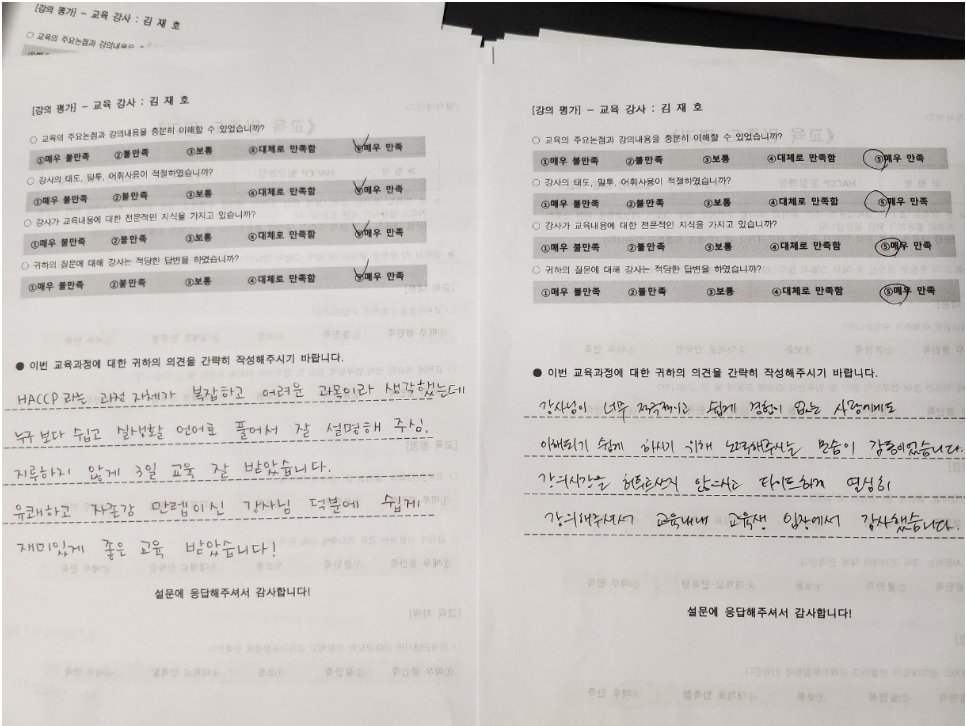 [강의 평가] - 교육 강사 : 김 재 호
○ 교육의 주요논점과 강의내용은
[강의 평가] - 교육 강사 : 김 재 호
○ 교육의 주요논점과 강의내용을 충분히 이해할 수 있었습니까?
①매우 불만족 ②불만족 ③보통 ④대체로 만족함 ⑤매우 만족
○ 강사의 태도, 말투, 어휘사용이 적절하였습니까?
①매우 불만족 ②불만족 ③보통 ④대체로 만족함 ⑤매우 만족
○ 강사가 교육내용에 대한 전문적인 지식을 가지고 있습니까?
①매우 불만족 ②불만족 ③보통 ④대체로 만족함 ⑤매우 만족
○ 귀하의 질문에 대해 강사는 적당한 답변을 하였습니까?
①매우 불만족 ②불만족 ③보통 ④대체로 만족함 ⑤매우 만족
● 이번 교육과정에 대한 귀하의 의견을 간략히 작성해주시기 바랍니다.
HACCP라는 과정 자체가 복잡하고 어려운 과목이라 생각했는데
누구보다 쉽고 실생활 언어로 풀어서 잘 설명해 주심.
지루하지 않게 3일 교육 잘 받았습니다.
유쾌하고 자존감 만렙이신 강사님 덕분에 쉽게
재미있게 좋은 교육 받았습니다!
설문에 응답해주셔서 감사합니다!
[강의 평가] - 교육 강사 : 김 재 호
○ 교육의 주요논점과 강의내용을 충분히 이해할 수 있었습니까?
①매우 불만족 ②불만족 ③보통 ④대체로 만족함 ⑤매우 만족
○ 강사의 태도, 말투, 어휘사용이 적절하였습니까?
①매우 불만족 ②불만족 ③보통 ④대체로 만족함 ⑤매우 만족
○ 강사가 교육내용에 대한 전문적인 지식을 가지고 있습니까?
①매우 불만족 ②불만족 ③보통 ④대체로 만족함 ⑤매우 만족
○ 귀하의 질문에 대해 강사는 적당한 답변을 하였습니까?
①매우 불만족 ②불만족 ③보통 ④대체로 만족함 ⑤매우 만족
● 이번 교육과정에 대한 귀하의 의견을 간략히 작성해주시기 바랍니다.
강사님이 너무 적극적이고 쉽게 경험이 없는 사람에게도
이해되기 쉽게 하시기 위해 노력해주시는 모습이 감동이었습니다.
강의시간을 허투르쓰지 않으시고 타이트하게 열심히
강의해주셔서 교육내내 교육생 입장에서 감사했습니다.
설문에 응답해주셔서 감사합니다!